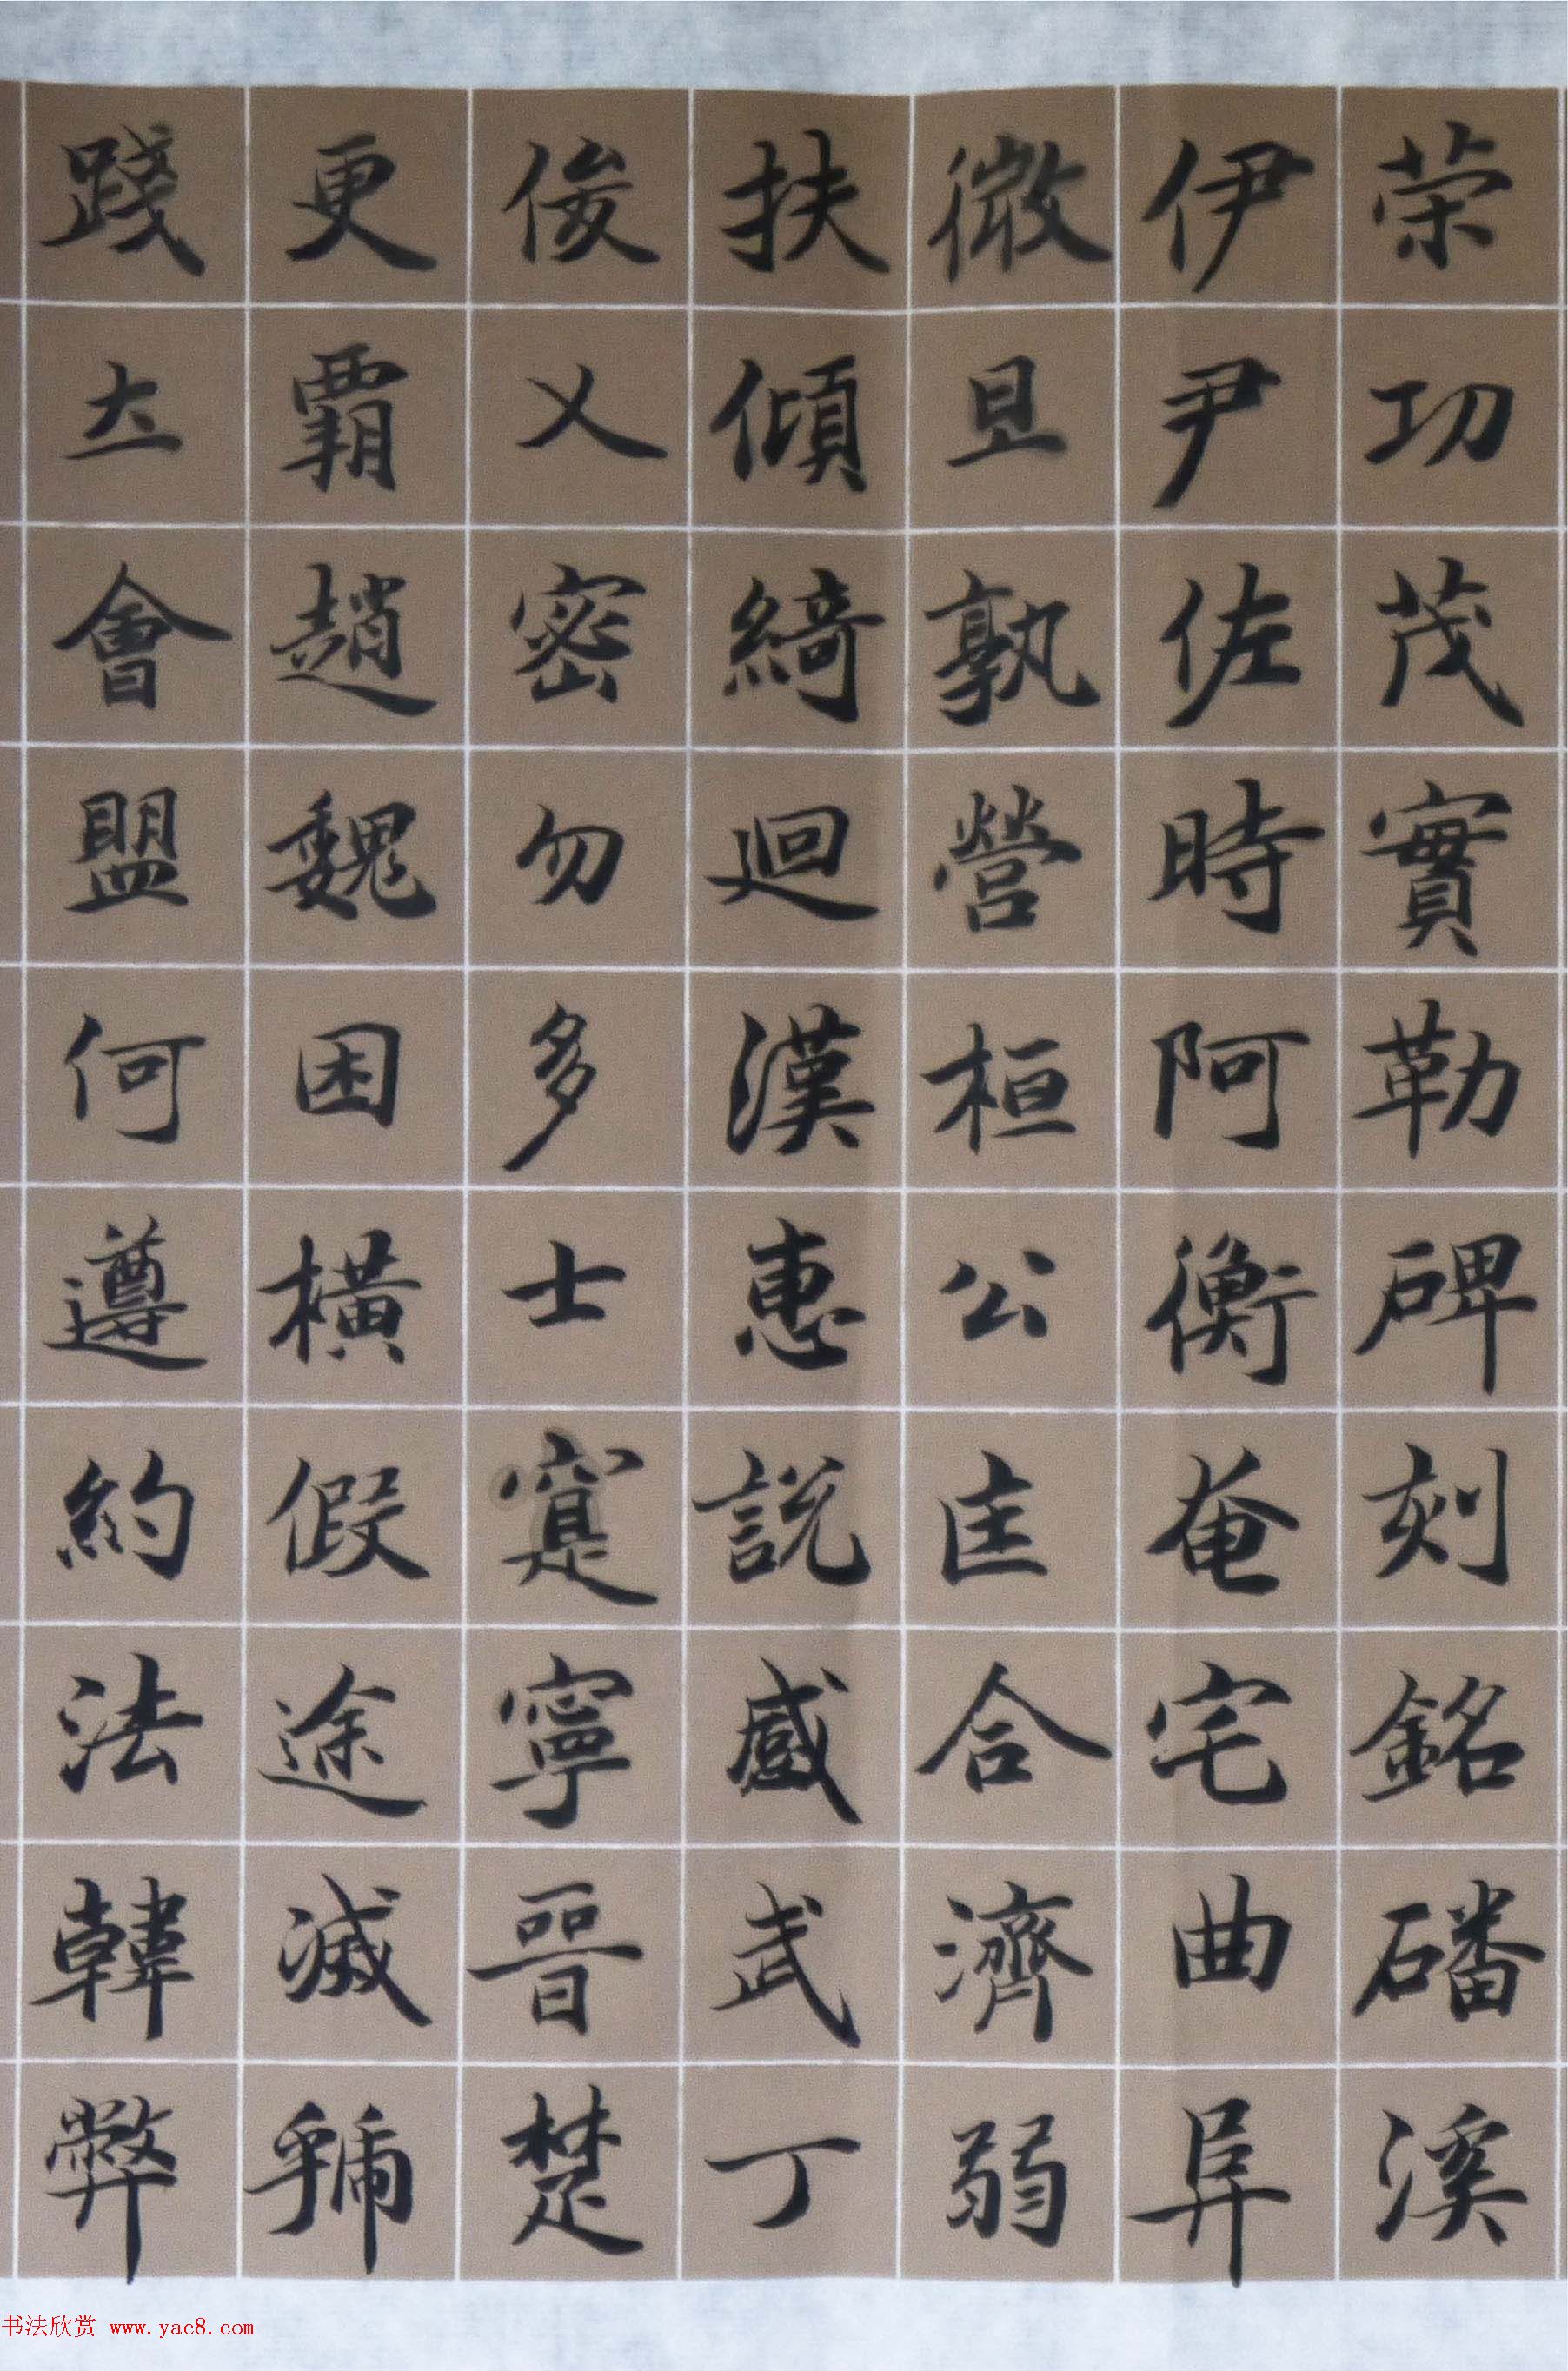 荣功茂實勒碑刻銘磻溪
伊尹佐時阿衡奄宅曲阜
微旦孰營桓公匡合濟弱
扶傾綺迴漢惠說感武丁
俊乂密勿多士寔寧晉楚
更霸趙魏困橫假途滅虢
踐土會盟何遵約法韓弊
书法欣赏 www.yac8.com